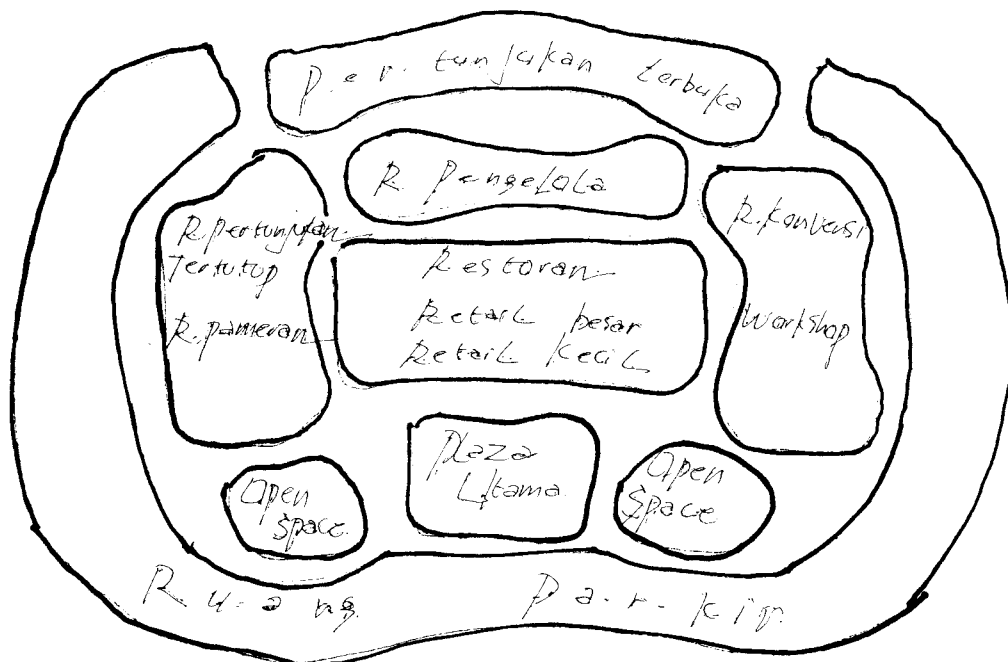 Per. tunjukan terbuka
R. Pengelola
R. pertunjukan
Tertutup
R. pameran
Restoran
Retail besar
Retail kecil
R. Konvensi
Workshop
Plaza
Utama
Open
Space
Open
Space
Ruang Parkir